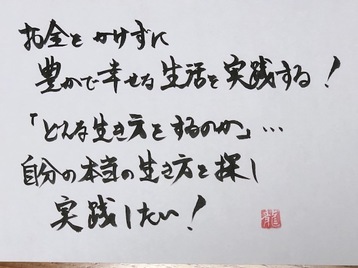 お金をかけずに
豊かで幸せな生活を実践する!
「どんな生き方をするのか」…
自分の本当の生き方を探し
実践したい!